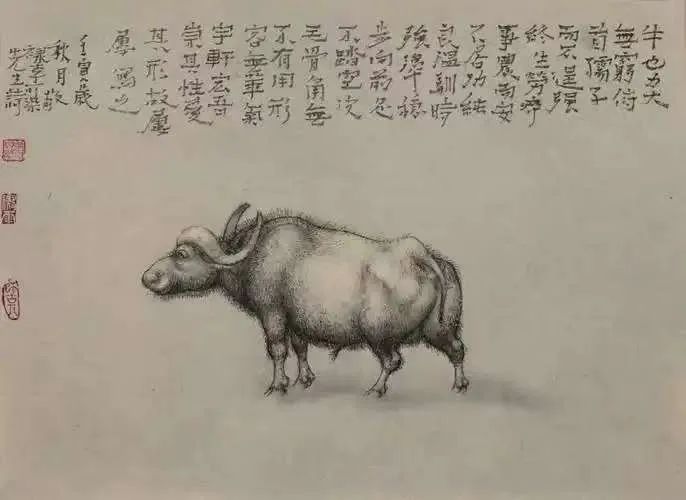 牛也力大
無窮俯
首孺子
而不逞强
終生勞瘁
事農而安
不居功純
良溫馴時
強犟穩
步向前足
不踏空皮
毛骨角無
不有用形
容無華氣
宇軒宏吾
崇其性愛
其形故屢
屢寫之
壬寅歲
秋月敬
錄李染
先生詩